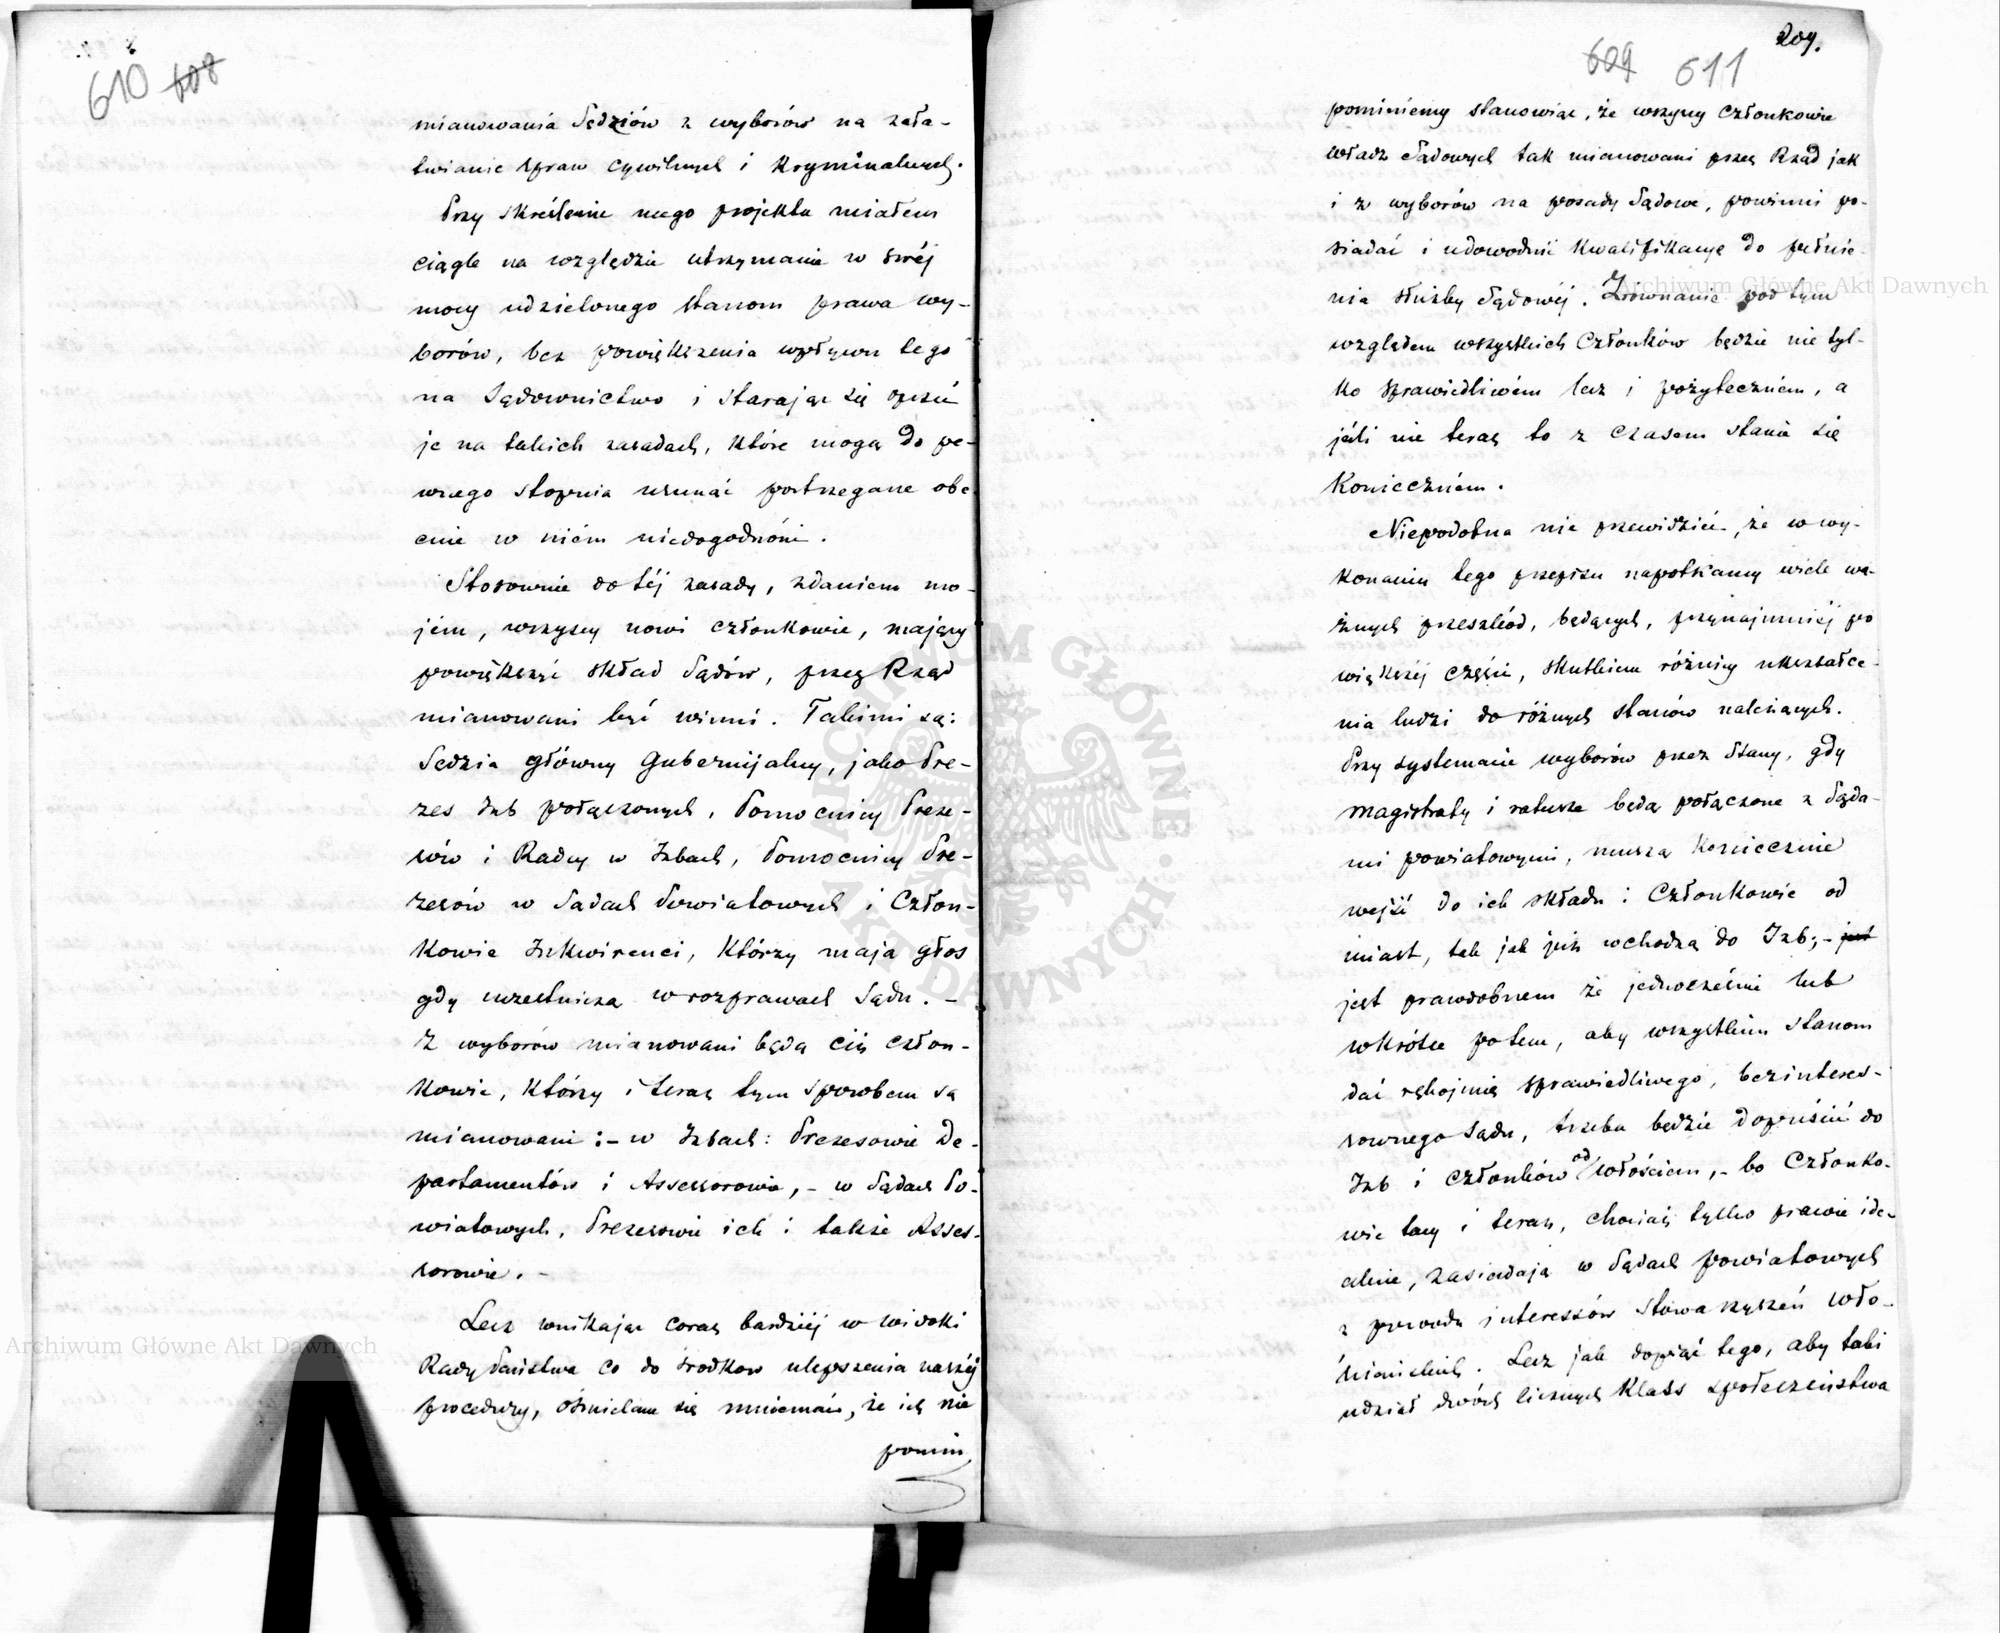 610 608
mianowania Sędziów z wyborów na zała-
twianie spraw cywilnych i Kryminalnych.
Przy skreślenie mego projektu miałem
ciągle na względzie utrzymanie w swéj
mocy udzielonego stanom prawa wy-
borów, bez powiększenia wpływu tego
na Sądownictwo i starając się oprzéć
je na takich zasadach, które mogą do pe-
wnego stopnia usunąć postrzegane obe
cnie w niém niedogodności.
Stosownie do téj zasady, zdaniem mo-
jém, wszyscy nowi członkowie, mający
powiększyć skład Sądów, przez Rząd
mianowani być winni. Takimi są:
Sędzia główny Gubernijalny, jako Pre-
zes Izb połączonych, Pomocnicy Preze-
sów i Radcy w Izbach, Pomocnicy Pre-
zesów w Sądach Powiatowych i Człon-
kowie Inkwirenci, Którzy mają głos
gdy uczestniczą w rozprawach Sądu. -
Z wyborów mianowani będą ciż człon-
kowie, Którzy i teraz tym sposobem są
mianowani :- w Izbach: Prezesowie De-
partamentów i Assessorowie, - w Sądach Po-
wiatowych, Prezesowie ich i także Asses-
sorowie. -
Lecz wnikając coraz bardziéj w widoki
Rady Państwa co do środków ulepszenia naszéj
procedury, ośmielam się mniemać, że ich nie
pomin
209.
609 611
pominiemy stanowiąc, że wszyscy Członkowie
władz Sądowych tak mianowani przez Rząd jak
i z wyborów na posady Sądowe, powinni po-
siadać i udowodnić Kwalifikacyę do pełnie-
nia służby Sądowéj. Zrównanie pod tym
względem wszystkich Członków będzie nie tyl-
ko sprawiedliwém lecz i pożyteczném, a
jeśli nie teraz to z czasem stanie się
Konieczném.
Niepodobna nie przewidzieć, że w wy-
konaniu tego przepisu napotkamy wiele wa-
żnych przeszkód, będących, przynajmniéj po
większéj części, skutkiem różnicy ukształce-
nia ludzi do różnych stanów należących.
Przy systemacie wyborów przez Stany, gdy
magistraty i ratusze będą połączone z Sąda-
mi powiatowymi, muszą Koniecznie
wejść do ich składu i Członkowie od
miast, tak jak już wchodzą do Izb; - jest
jest prawdobnem że jednocześnie lub
wkrótce potem, aby wszystkim stanom
dać rękojmię sprawiedliwego, bezinteres-
sownego Sądu, trzeba będzie dopuścić do
Izb i członków od włościan, - bo Członko-
wie tacy i teraz, chociaż tylko prawie ide-
alnie, zasiadają w Sądach powiatowych
z powodu interessów stowarzyszeń wło-
ściańskich. Lecz jak dopiąć tego, aby taki
udział dwóch licznych Klass społeczeństwa
Archiwum Główne Akt Dawnych
Archiwum Główne Akt Dawnych
ARCHIWUM GŁÓWNE AKT DAWNYCH